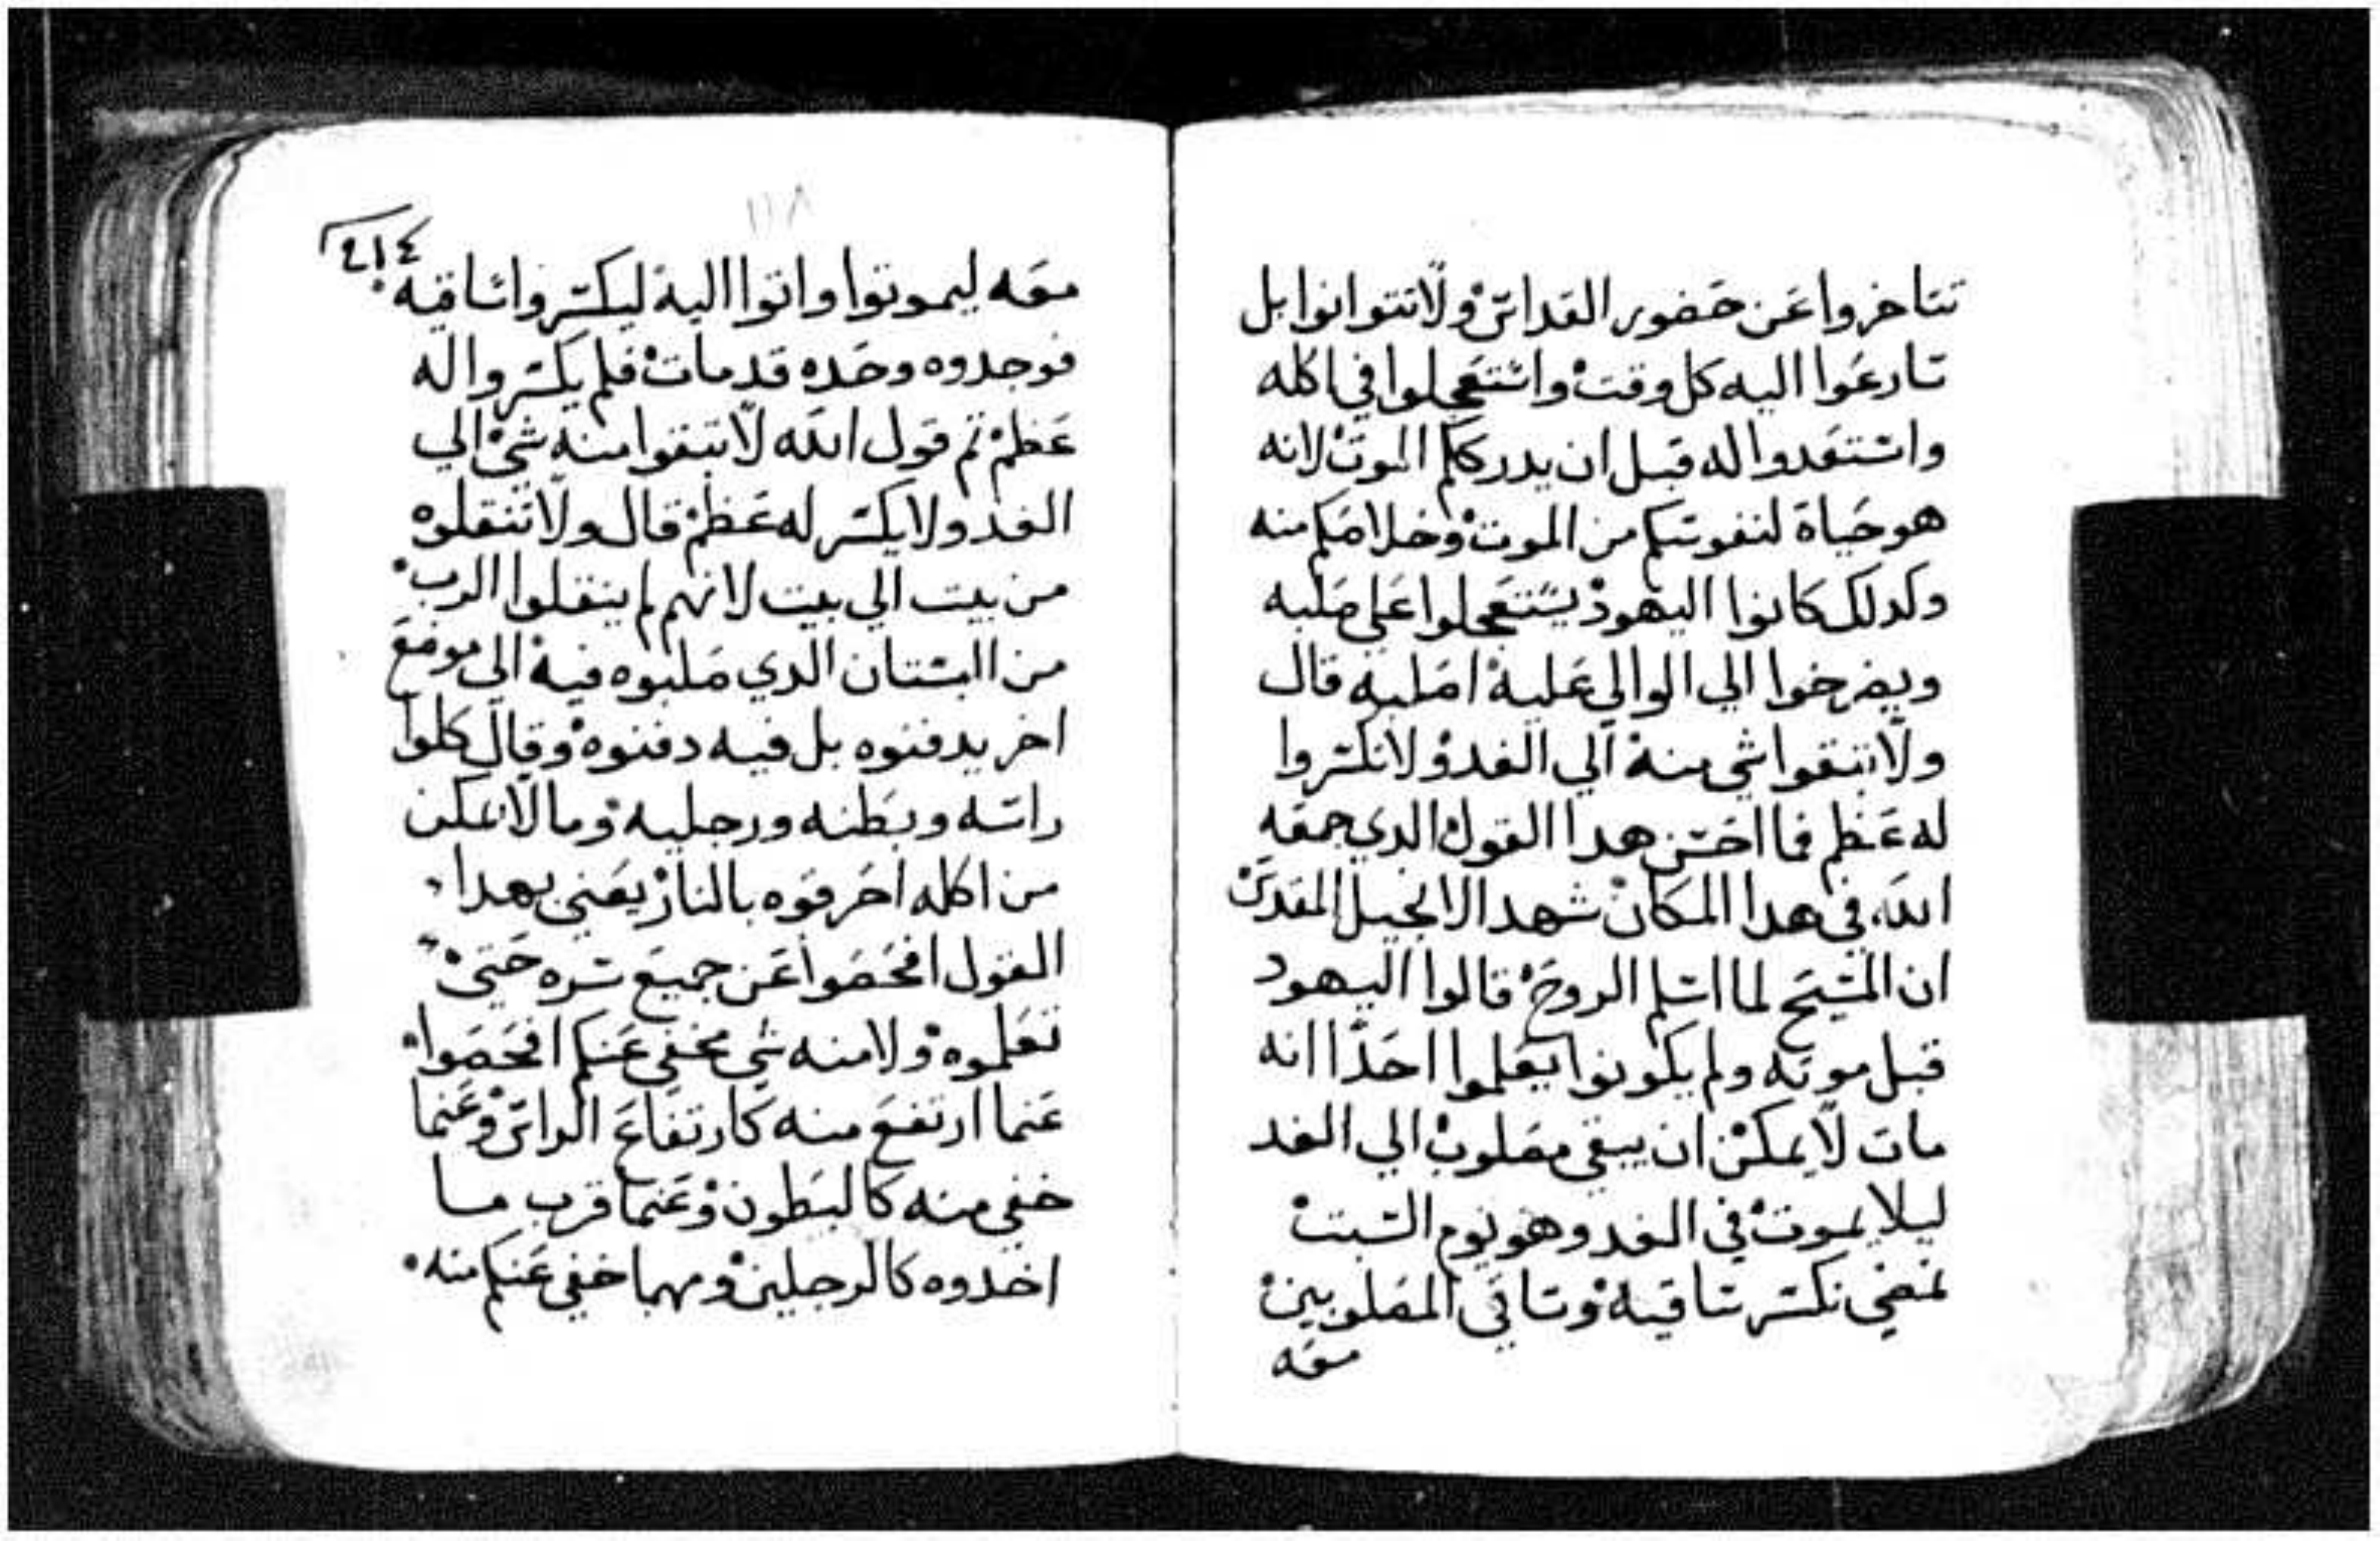 تتاخروا عن حضور القداس ولا تتوانوا بل
تسارعوا اليه كل وقت واستعجلوا في اكله
واستعدوا له قبل ان يدرككم الموت لانه
هو حياة لنفوسكم من الموت وخلاصكم منه
وكدلك كانوا اليهود يستعجلوا على صلبه
ويصرخوا الي الوالي عليه اصلبه قال
ولا تبقوا شي منه الي الغد ولا تكسروا
له عظم فما احسن هدا القول الدي جمعه
الله في هدا المكان شهد الانجيل المقدس
ان المسيح لما اسلم الروح قالوا اليهود
قبل موته ولم يكونوا يعلموا احدا انه
مات لا يمكن ان يبقي مصلوب الي الغد
ليلا يموت في الغد وهو يوم السبت
نمضي نكسر ساقيه وساقي المصلوبين
معه
٢١٤
معه ليموتوا واتوا اليه ليكسروا ساقيه
فوجدوه وحده قد مات فلم يكسروا له
عظم تم قول الله لا تبقوا منه شي الي
الغد ولا يكسر له عظم قال ولا تنقلوه
من بيت الي بيت لانهم لم ينقلوا الرب
من البستان الدي صلبوه فيه الي موضع
اخر يدفنوه بل فيه دفنوه وقال كلوا
راسه وبطنه ورجليه وما لا يمكن
من اكله احرقوه بالنار يعني بهدا
القول افحصوا عن جميع سره حتي
تعلموه ولا منه شي مخفي عنكم افحصوا
عنما ارتفع منه كارتفاع الراس وعنما
خفي منه كالبطون وعنما قرب مما
اخدوه كالرجلين ومهما خفي عنكم منه